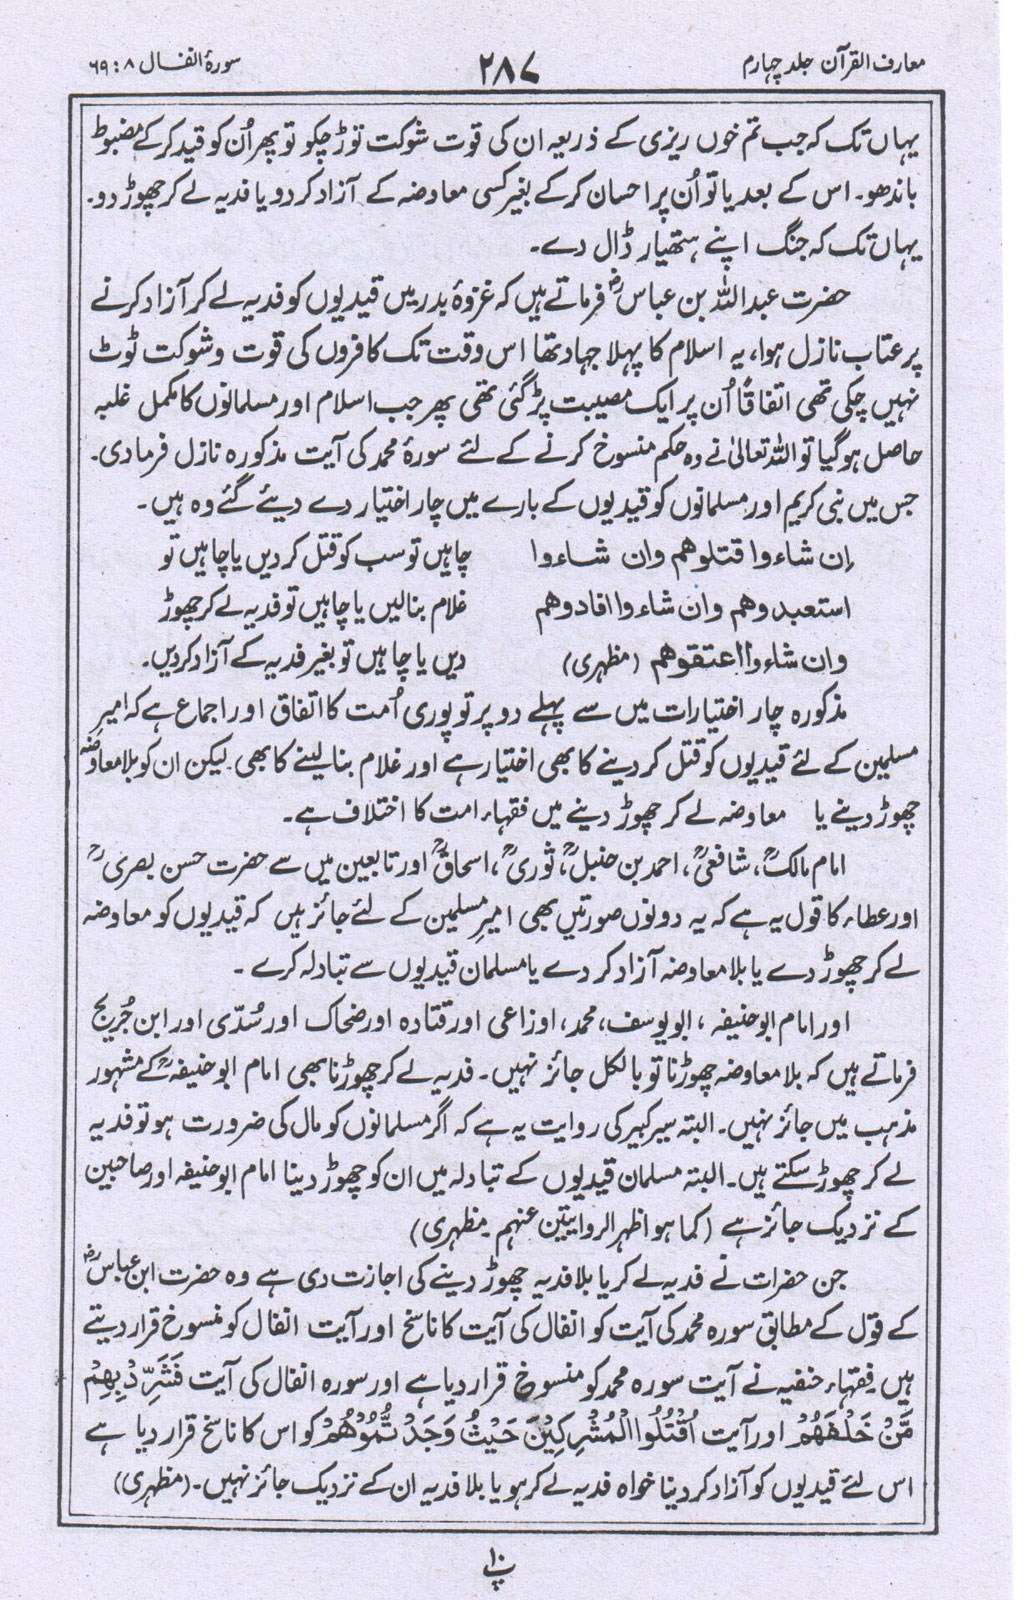 معارف القرآن جلد چہارم
۲۸۷
سورۂ انفال ۸ : ۶۹
یہاں تک کہ جب تم خوں ریزی کے ذریعہ ان کی قوت شوکت توڑ چکو تو پھر اُن کو قید کرکے مضبوط
باندھو۔ اس کے بعد یا تو اُن پر احسان کرکے بغیر کسی معاوضہ کے آزاد کردو یا فدیہ لے کر چھوڑ دو۔
یہاں تک کہ جنگ اپنے ہتھیار ڈال دے۔
حضرت عبداللہ بن عباسؓ فرماتے ہیں کہ غزوۂ بدر میں قیدیوں کو فدیہ لے کر آزاد کرنے
پر عتاب نازل ہوا، یہ اسلام کا پہلا جہاد تھا اس وقت تک کافروں کی قوت و شوکت ٹوٹ
نہیں چکی تھی اتفاقاً اُن پر ایک مصیبت پڑ گئی تھی پھر جب اسلام اور مسلمانوں کا مکمل غلبہ
حاصل ہوگیا تو اللہ تعالیٰ نے وہ حکم منسوخ کرنے کے لئے سورۂ محمد کی آیت مذکورہ نازل فرما دی۔
جس میں نبی کریم اور مسلمانوں کو قیدیوں کے بارے میں چار اختیار دے دیئے گئے وہ ہیں۔
اِن شاءوا قتلوهم وان شاءوا
چاہیں تو سب کو قتل کردیں یا چاہیں تو
استعبدوهم وان شاءوا افادوهم
غلام بنالیں یا چاہیں تو فدیہ لے کر چھوڑ
وان شاءوا اعتقوهم (مظہری)
دیں یا چاہیں تو بغیر فدیہ کے آزاد کردیں۔
مذکورہ چار اختیارات میں سے پہلے دو پر تو پوری اُمت کا اتفاق اور اجماع ہے کہ امیرِ
مسلمین کے لئے قیدیوں کو قتل کردینے کا بھی اختیار ہے اور غلام بنا لینے کا بھی۔ لیکن ان کو بلا معاوضہ
چھوڑ دینے یا معاوضہ لے کر چھوڑ دینے میں فقہاء امت کا اختلاف ہے۔
امام مالکؒ، شافعیؒ، احمد بن حنبلؒ، ثوریؒ، اسحاقؒ اور تابعین میں سے حضرت حسن بصریؒ
اور عطاء کا قول یہ ہے کہ یہ دونوں صورتیں بھی امیرِ مسلمین کے لئے جائز ہیں کہ قیدیوں کو معاوضہ
لے کر چھوڑ دے یا بلا معاوضہ آزاد کردے یا مسلمان قیدیوں سے تبادلہ کرے۔
اور امام ابوحنیفہ، ابویوسف، محمد، اوزاعی اور قتادہ اور ضحاک اور سُدّی اور ابن جُریج
فرماتے ہیں کہ بلا معاوضہ چھوڑنا تو بالکل جائز نہیں۔ فدیہ لے کر چھوڑنا بھی امام ابو حنیفہؒ کے مشہور
مذہب میں جائز نہیں۔ البتہ سیر کبیر کی روایت یہ ہے کہ اگر مسلمانوں کو مال کی ضرورت ہو تو فدیہ
لے کر چھوڑ سکتے ہیں۔ البتہ مسلمان قیدیوں کے تبادلہ میں ان کو چھوڑ دینا امام ابو حنیفہ اور صاحبین
کے نزدیک جائز ہے (کما ھو اظہر الروایتین عنہم۔ مظہری)
جن حضرات نے فدیہ لے کر یا بلا فدیہ چھوڑ دینے کی اجازت دی ہے وہ حضرت ابن عباسؓ
کے قول کے مطابق سورہ محمد کی آیت کو انفال کی آیت کا ناسخ اور آیت انفال کو منسوخ قرار دیتے
ہیں۔ فقہاء حنفیہ نے آیت سورہ محمد کو منسوخ قرار دیا ہے اور سورہ انفال کی آیت فَشَرِّدْ بِهِمْ
مَّنْ خَلْفَهُمْ اور آیت اُقْتُلُوا الْمُشْرِكِيْنَ حَيْثُ وَجَدْتُّمُوْهُمْ کو اس کا ناسخ قرار دیا ہے
اس لئے قیدیوں کو آزاد کردینا خواہ فدیہ لے کر ہو یا بلا فدیہ ان کے نزدیک جائز نہیں۔ (مظہری)